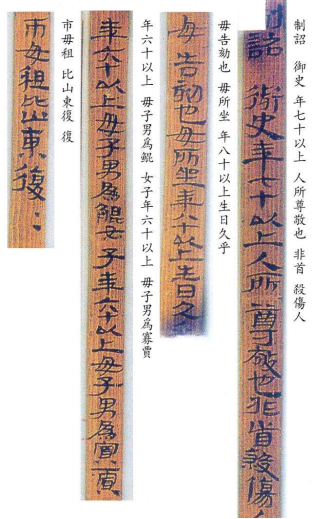 制詔 御史 年七十以上 人所尊敬也 非首 殺傷人
制詔 御史年七十以上人所尊敬也非首殺傷人
毋告劾也 毋所坐 年八十以上生日久乎
毋告劾也毋所坐年八十以上生日久
年六十以上 毋子男爲鯤 女子年六十以上 毋子男爲寡賈
年六十以上毋子男爲鯤女子年六十以上毋子男爲寡賈
市毋租 比山東復 復
市毋租比山東復: